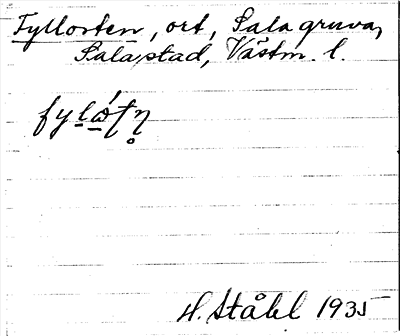 Fyllorten, ort, Sala gruva,
Sala stad, Västm. l.
H. Ståhl 1935